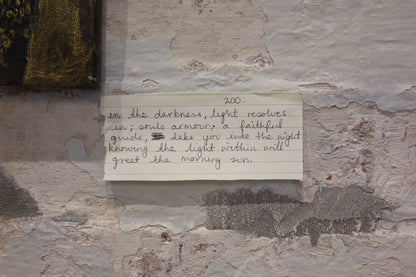 200.
in the darkness, light resolves
in; souls armour, a faithful
guide, take you into the night
knowing the light within will
greet the morning sun.